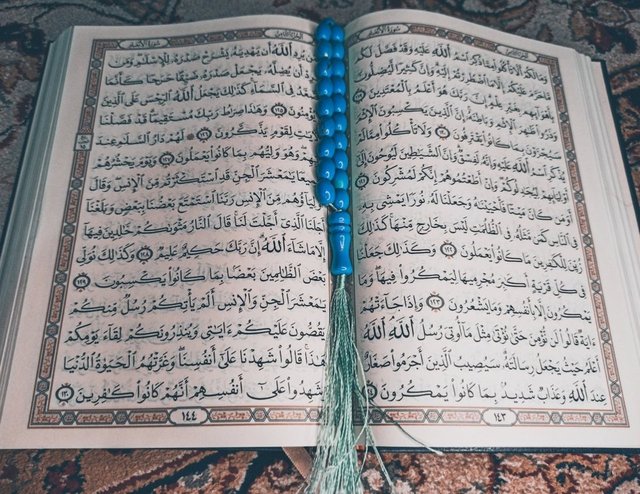 سُورَةُ الأَنْعَامِ
الجُزْءُ الثَّامِنُ
وَمَا لَكُمْ أَلَّا تَأْكُلُواْ مِمَّا ذُكِرَ ٱسْمُ ٱللَّهِ عَلَيْهِ وَقَدْ فَصَّلَ لَكُم
مَّا حَرَّمَ عَلَيْكُمْ إِلَّا مَا ٱضْطُرِرْتُمْ إِلَيْهِ وَإِنَّ كَثِيرًا لَّيُضِلُّونَ
بِأَهْوَآئِهِم بِغَيْرِ عِلْمٍ إِنَّ رَبَّكَ هُوَ أَعْلَمُ بِٱلْمُعْتَدِينَ ١١٩
وَذَرُواْ ظَٰهِرَ ٱلْإِثْمِ وَبَاطِنَهُۥٓ إِنَّ ٱلَّذِينَ يَكْسِبُونَ ٱلْإِثْمَ
سَيُجْزَوْنَ بِمَا كَانُواْ يَقْتَرِفُونَ ١٢٠ وَلَا تَأْكُلُواْ مِمَّا لَمْ
يُذْكَرِ ٱسْمُ ٱللَّهِ عَلَيْهِ وَإِنَّهُۥ لَفِسْقٌ وَإِنَّ ٱلشَّيَٰطِينَ لَيُوحُونَ إِلَىٰٓ
أَوْلِيَآئِهِمْ لِيُجَٰدِلُوكُمْ وَإِنْ أَطَعْتُمُوهُمْ إِنَّكُمْ لَمُشْرِكُونَ ١٢١
أَوَمَن كَانَ مَيْتًا فَأَحْيَيْنَٰهُ وَجَعَلْنَا لَهُۥ نُورًا يَمْشِى بِهِۦ
فِى ٱلنَّاسِ كَمَن مَّثَلُهُۥ فِى ٱلظُّلُمَٰتِ لَيْسَ بِخَارِجٍ مِّنْهَا كَذَٰلِكَ
زُيِّنَ لِلْكَٰفِرِينَ مَا كَانُواْ يَعْمَلُونَ ١٢٢ وَكَذَٰلِكَ جَعَلْنَا
فِى كُلِّ قَرْيَةٍ أَكَٰبِرَ مُجْرِمِيهَا لِيَمْكُرُواْ فِيهَا وَمَا
يَمْكُرُونَ إِلَّا بِأَنفُسِهِمْ وَمَا يَشْعُرُونَ ١٢٣ وَإِذَا جَآءَتْهُمْ
ءَايَةٌ قَالُواْ لَن نُّؤْمِنَ حَتَّىٰ نُؤْتَىٰ مِثْلَ مَآ أُوتِىَ رُسُلُ ٱللَّهِ ٱللَّهُ
أَعْلَمُ حَيْثُ يَجْعَلُ رِسَالَتَهُۥ سَيُصِيبُ ٱلَّذِينَ أَجْرَمُواْ صَغَارٌ
عِندَ ٱللَّهِ وَعَذَابٌ شَدِيدٌۢ بِمَا كَانُواْ يَمْكُرُونَ ١٢٤
١٤٣
الجُزْءُ الثَّامِنُ
سُورَةُ الأَنْعَامِ
فَمَن يُرِدِ ٱللَّهُ أَن يَهْدِيَهُۥ يَشْرَحْ صَدْرَهُۥ لِلْإِسْلَٰمِ وَمَن
يُرِدْ أَن يُضِلَّهُۥ يَجْعَلْ صَدْرَهُۥ ضَيِّقًا حَرَجًا كَأَنَّمَا
يَصَّعَّدُ فِى ٱلسَّمَآءِ كَذَٰلِكَ يَجْعَلُ ٱللَّهُ ٱلرِّجْسَ عَلَى ٱلَّذِينَ
لَا يُؤْمِنُونَ ١٢٥ وَهَٰذَا صِرَٰطُ رَبِّكَ مُسْتَقِيمًا قَدْ فَصَّلْنَا
ٱلْءَايَٰتِ لِقَوْمٍ يَذَّكَّرُونَ ١٢٦ لَهُمْ دَارُ ٱلسَّلَٰمِ عِندَ
رَبِّهِمْ وَهُوَ وَلِيُّهُم بِمَا كَانُواْ يَعْمَلُونَ ١٢٧ وَيَوْمَ يَحْشُرُهُمْ
جَمِيعًا يَٰمَعْشَرَ ٱلْجِنِّ قَدِ ٱسْتَكْثَرْتُم مِّنَ ٱلْإِنسِ وَقَالَ
أَوْلِيَآؤُهُم مِّنَ ٱلْإِنسِ رَبَّنَا ٱسْتَمْتَعَ بَعْضُنَا بِبَعْضٍ وَبَلَغْنَآ
أَجَلَنَا ٱلَّذِىٓ أَجَّلْتَ لَنَا قَالَ ٱلنَّارُ مَثْوَىٰكُمْ خَٰلِدِينَ فِيهَآ
إِلَّا مَا شَآءَ ٱللَّهُ إِنَّ رَبَّكَ حَكِيمٌ عَلِيمٌ ١٢٨ وَكَذَٰلِكَ نُوَلِّى
بَعْضَ ٱلظَّٰلِمِينَ بَعْضًۢا بِمَا كَانُواْ يَكْسِبُونَ ١٢٩
يَٰمَعْشَرَ ٱلْجِنِّ وَٱلْإِنسِ أَلَمْ يَأْتِكُمْ رُسُلٌ مِّنكُمْ
يَقُصُّونَ عَلَيْكُمْ ءَايَٰتِى وَيُنذِرُونَكُمْ لِقَآءَ يَوْمِكُمْ
هَٰذَا قَالُواْ شَهِدْنَا عَلَىٰٓ أَنفُسِنَا وَغَرَّتْهُمُ ٱلْحَيَوٰةُ ٱلدُّنْيَا
وَشَهِدُواْ عَلَىٰٓ أَنفُسِهِمْ أَنَّهُمْ كَانُواْ كَٰفِرِينَ ١٣٠
١٤٤